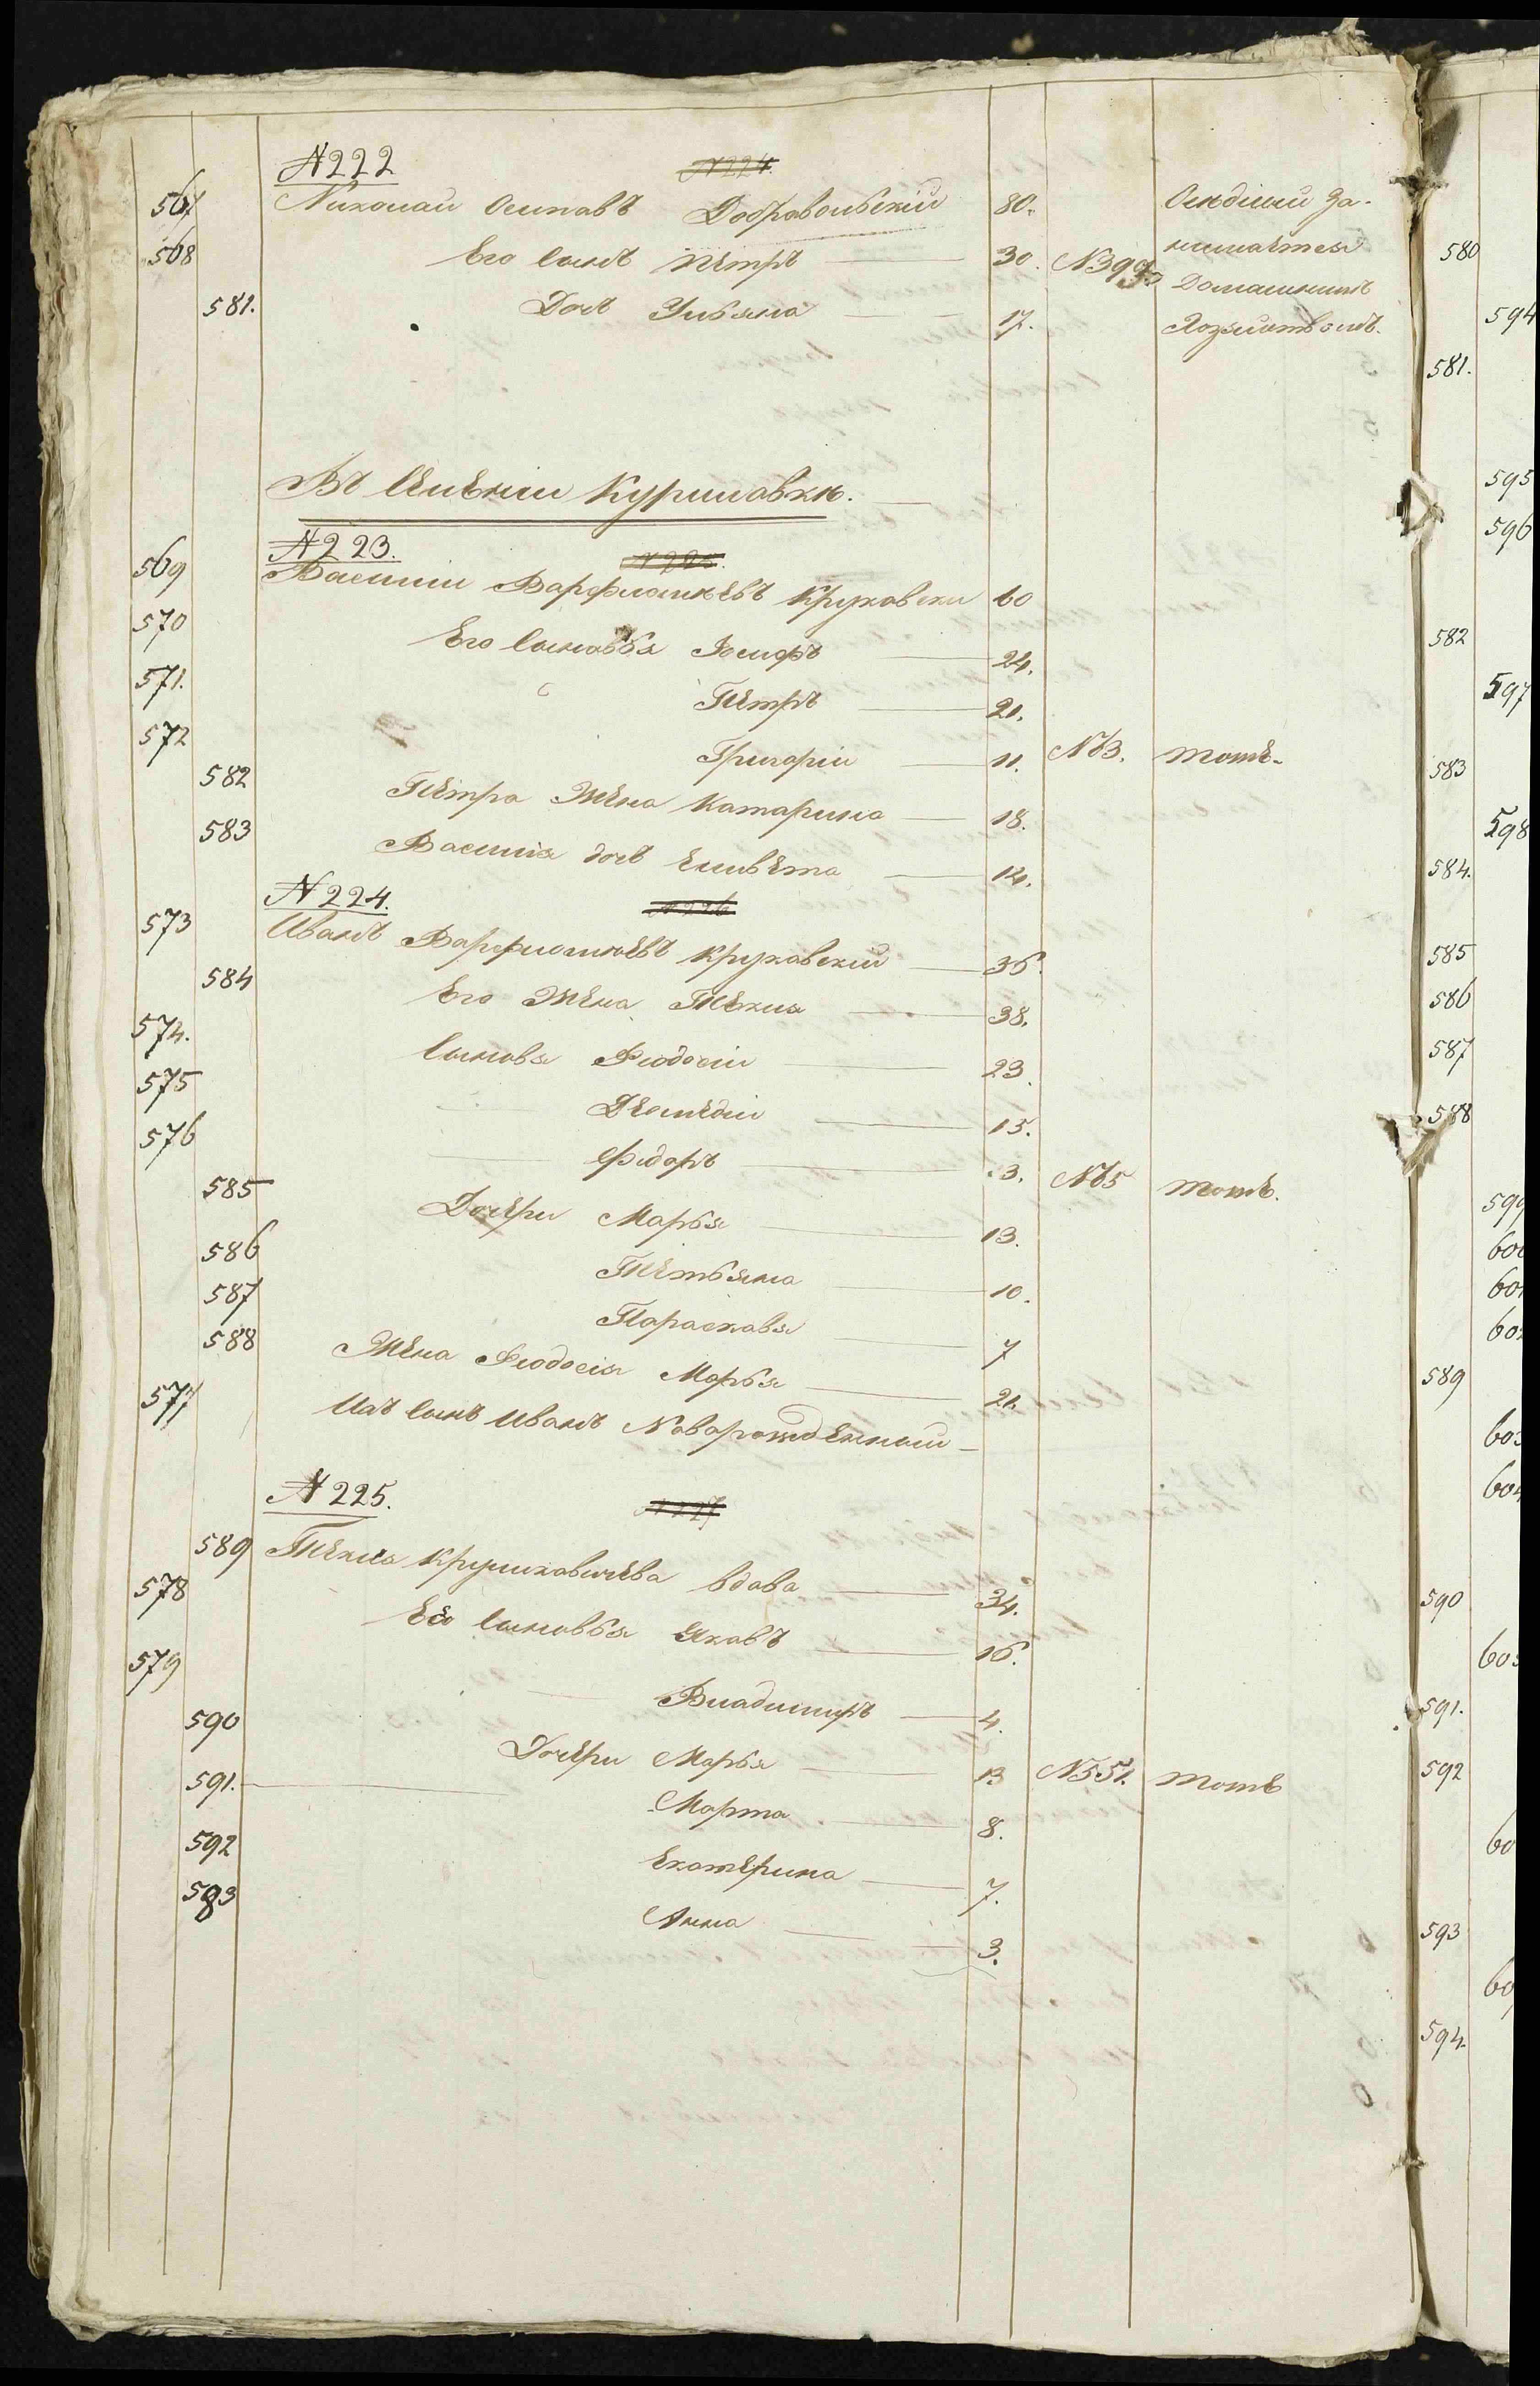 № 222 № 224.
567 Николай Осиповъ Добровольскій 80. Осѣдлый за-
568 Его сынъ Петръ 30. № 399. нимается
581. Дочь Ульяна 17. Домашнимъ
Хозяйствомъ.
Въ Селеніи Куриловкѣ.
№ 223. № 225.
569 Василій Варфломѣевъ Круковски 60
570 Его сыновья Іосифъ 24.
571. Петръ 21.
572 Григорій 11. № 63. тоже.
582 Петра Жена Катарина 18.
583 Василія дочь Елисвета 14.
№ 224. № 226
573 Иванъ Варфломѣевъ Круковскій 36.
584 Его Жена Текля 38.
574. Сыновя Феодосій 23.
575 15.
576 Федоръ 3. № 65 тоже.
585 Дочери Марья 13.
586 Тетьяна 10.
587 Параскавя 7
588 Жена Феодосія Марья 21.
577 Ихъ сынъ Иванъ Новорожденный
№ 225. № 227
589 Текля вдова 34.
578 Ео сыновья Яковъ 16.
579 Владимиръ 4.
590 Дочери Марья 13 № 551. тоже
591. Марта 8.
592 Екатерина 7.
593 Анна 3.
580
594
581.
595
596
582
597
583
598
584.
585
586
587
588
599
589
590
591.
592
593
594.